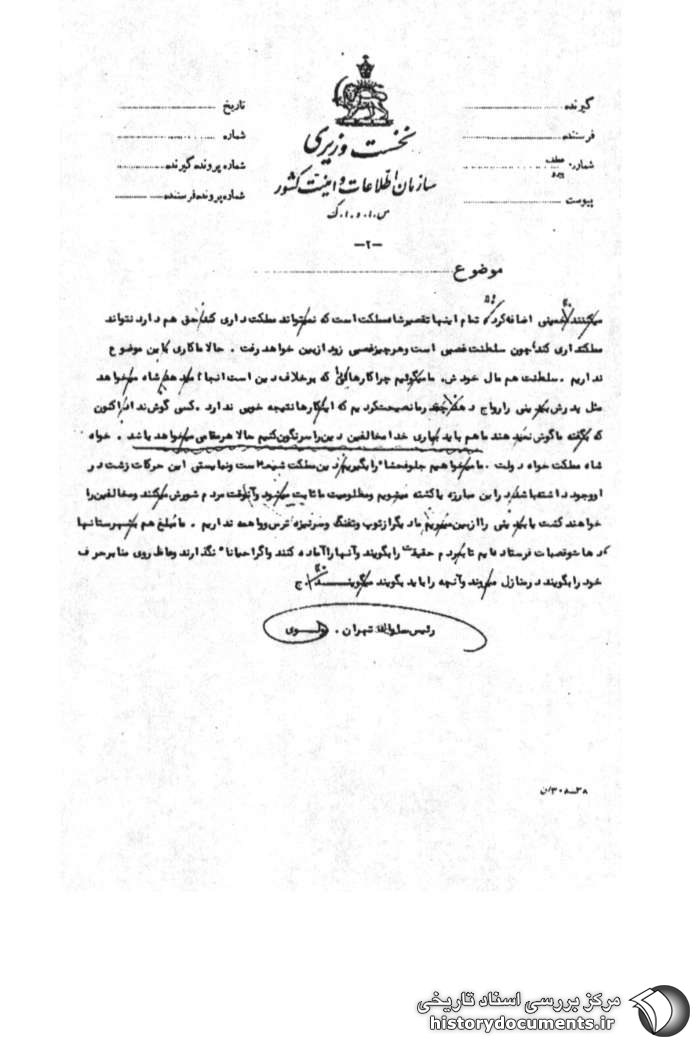 نخست وزیری
سازمان اطلاعات و امنیت کشور
س.ا.و.ا.ک
گیرنده
فرستنده
شماره عطف پیرو
پیوست
تاریخ
شماره
شماره پرونده گیرنده
شماره پرونده فرستنده
-۲-
موضوع
میکنند خمینی اضافه کرد که تمام اینها تقصیر شاه مملکت است که نمیتواند مملکت داری کند حق هم دارد نتواند
مملکتداری کند چون سلطنت غصبی است و هر چیز غصبی زود از بین خواهد رفت . حالا ما کاری باین موضوع
نداریم . سلطنت هم مال خودش. ما میگوئیم چرا کارهائی که بر خلاف دین است انجام میدهد شاه میخواهد
مثل پدرش بیدینی را رواج دهد هر چند ما نصیحت کردیم که این کارها نتیجه خوبی ندارد . کسی گوش نداد اکنون
که بگفته ما گوش نمیدهند ما هم باید بیاری خدا مخالفین دین را سرنگون کنیم حالا هر مقامی میخواهد باشد . خواه
شاه مملکت خواه دولت . ما میخواهیم جلو فحشاء را بگیریم دین مملکت شیعه است و نبایستی این حرکات زشت در
او وجود داشته باشد در این مبارزه یا کشته میشویم و مظلومیت ما ثابت میشود و آنوقت مردم شورش میکنند و مخالفین را
خواهند کشت یا بیدینی را از بین میبریم ما دیگر از توپ و تفنگ و سرنیزه ترس و واهمه نداریم . ما مبلغ هم بشهرستانها
دهات و قصبات فرستاده‌ایم تا بمردم حقیقت را بگویند و آنها را آماده کنند و اگر احیانا" نگذارند وعاظ روی منابر حرف
خود را بگویند در منازل میروند و آنچه را باید بگویند میگویند. ج
رئیس ساواک تهران . مولوی
۳۰۸-۳۸/ن
مرکز بررسی اسناد تاریخی
historydocuments.ir